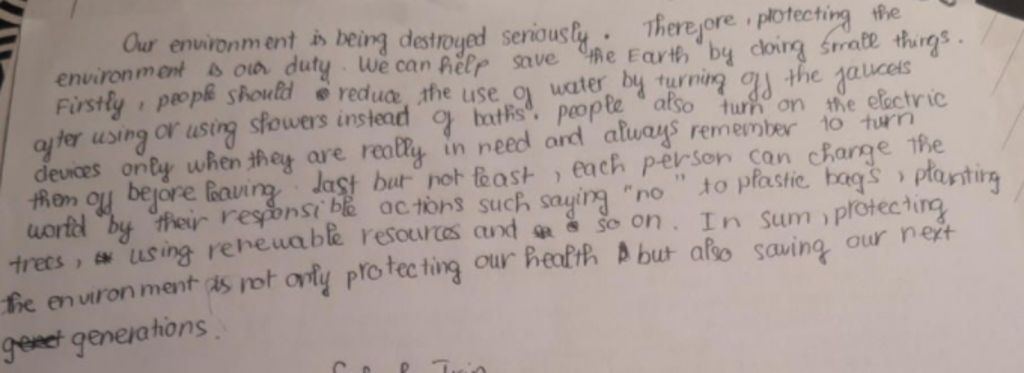 Our environment is being destroyed seriously. Therefore, protecting the
environment is our duty. We can help save the Earth by doing small things.
Firstly, people should reduce the use of water by turning off the faucets
after using or using showers instead of baths. people also turn on the electric
devices only when they are really in need and always remember to turn
them off before leaving. Last but not least, each person can change the
world by their responsible actions such saying "no" to plastic bags, planting
trees, using renewable resources and so on. In sum, protecting
the environment is not only protecting our health but also saving our next
generations.